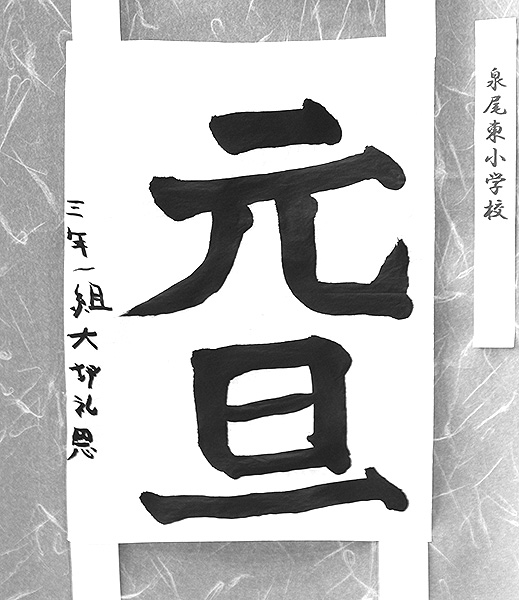 泉尾東小学校
元旦
三年一組大城礼恩